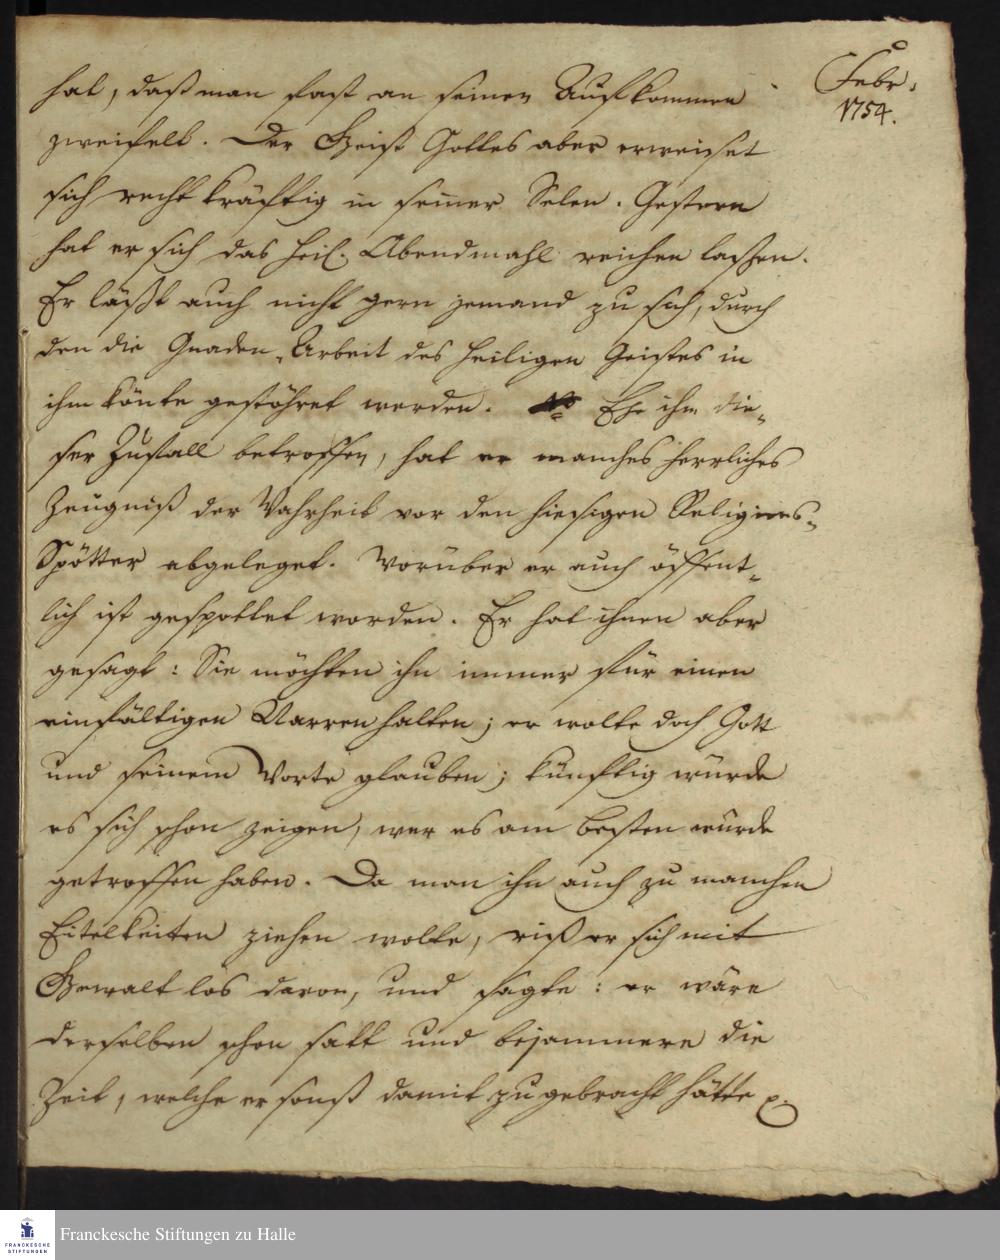 Febr.
1754.
hat, daß man fast an seinen Aufkommen
zweifelt. Der Geist Gottes aber erweiset
sich recht kräftig in seiner Selen. Gestern
hat er sich das heil. Abendmahl reichen laßen.
Er läßt auch nicht gern jemand zu sich, durch
den die Gnaden-Arbeit des heiligen Geistes in
ihm könte gestöhret werden. Ehe ihm die-
ser Zufall betroffen, hat er manches herrliches
Zeugniß der Wahrheit vor den hiesigen Religions-
Spötter abgeleget. Worüber er auch öffent-
lich ist gespottet worden. Er hat ihnen aber
gesagt: Sie möchten ihn immer für einen
einfältigen Narren halten; er wolte doch Gott
und seinem Worte glauben; künftig würde
es sich schon zeigen, wer es am besten würde
getroffen haben. Da man ihn auch zu manchen
Eitelkeiten ziehen wolte, riß er sich mit
Gewalt los davon, und sagte: er wäre
derselben schon satt und bejammere die
Zeit, welche er sonst damit zugebracht hätte
FRANCKESCHE
STIFTUNGEN
Franckesche Stiftungen zu Halle